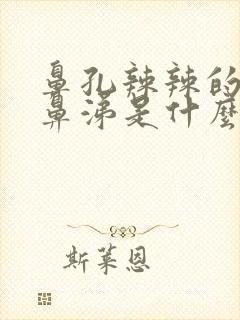 鼻孔辣辣的
鼻涕是什麼
斯萊恩